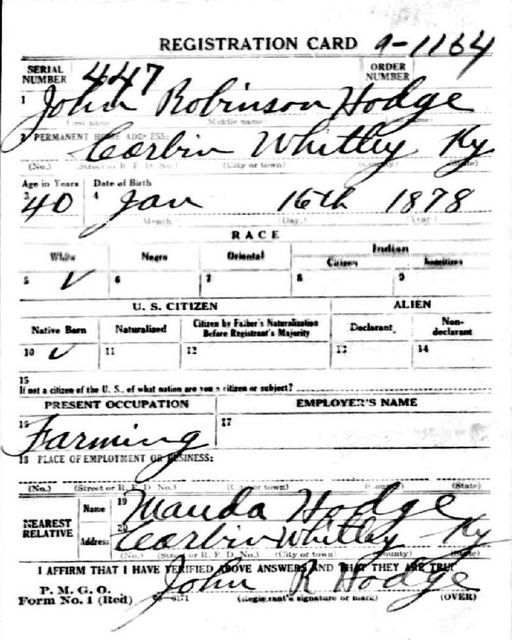 REGISTRATION CARD 9-1164
SERIAL NUMBER 447 ORDER NUMBER
1 John Robinson Hodge
Middle name
2 PERMANENT HOME ADDRESS:
Corbin Whitley Ky
(No.) (Street or R. F. D. No.) (City or town) (County) (State)
Age in Years Date of Birth
3 40 4 Jan 16th 1878
Month. Day. Year.
RACE
White Negro Oriental Indian
Citizen Noncitizen
5 ✓ 6 7 8 9
U. S. CITIZEN ALIEN
Native Born Naturalized Citizen by Father's Naturalization Before Registrant's Majority Declarant Non-declarant
10 ✓ 11 12 13 14
15
If not a citizen of the U. S., of what nation are you a citizen or subject?
PRESENT OCCUPATION EMPLOYER'S NAME
16 Farming 17
18 PLACE OF EMPLOYMENT OR BUSINESS:
(No.) (Street or R. F. D. No.) (City or town) (County) (State)
NEAREST RELATIVE
Name 19 Mauda Hodge
Address 20 Corbin Whitley Ky
(No.) (Street or R. F. D. No.) (City or town) (County) (State)
I AFFIRM THAT I HAVE VERIFIED ABOVE ANSWERS AND THAT THEY ARE TRUE
P. M. G. O.
Form No. 1 (Red) John R Hodge
(Registrant's signature or mark) (OVER)